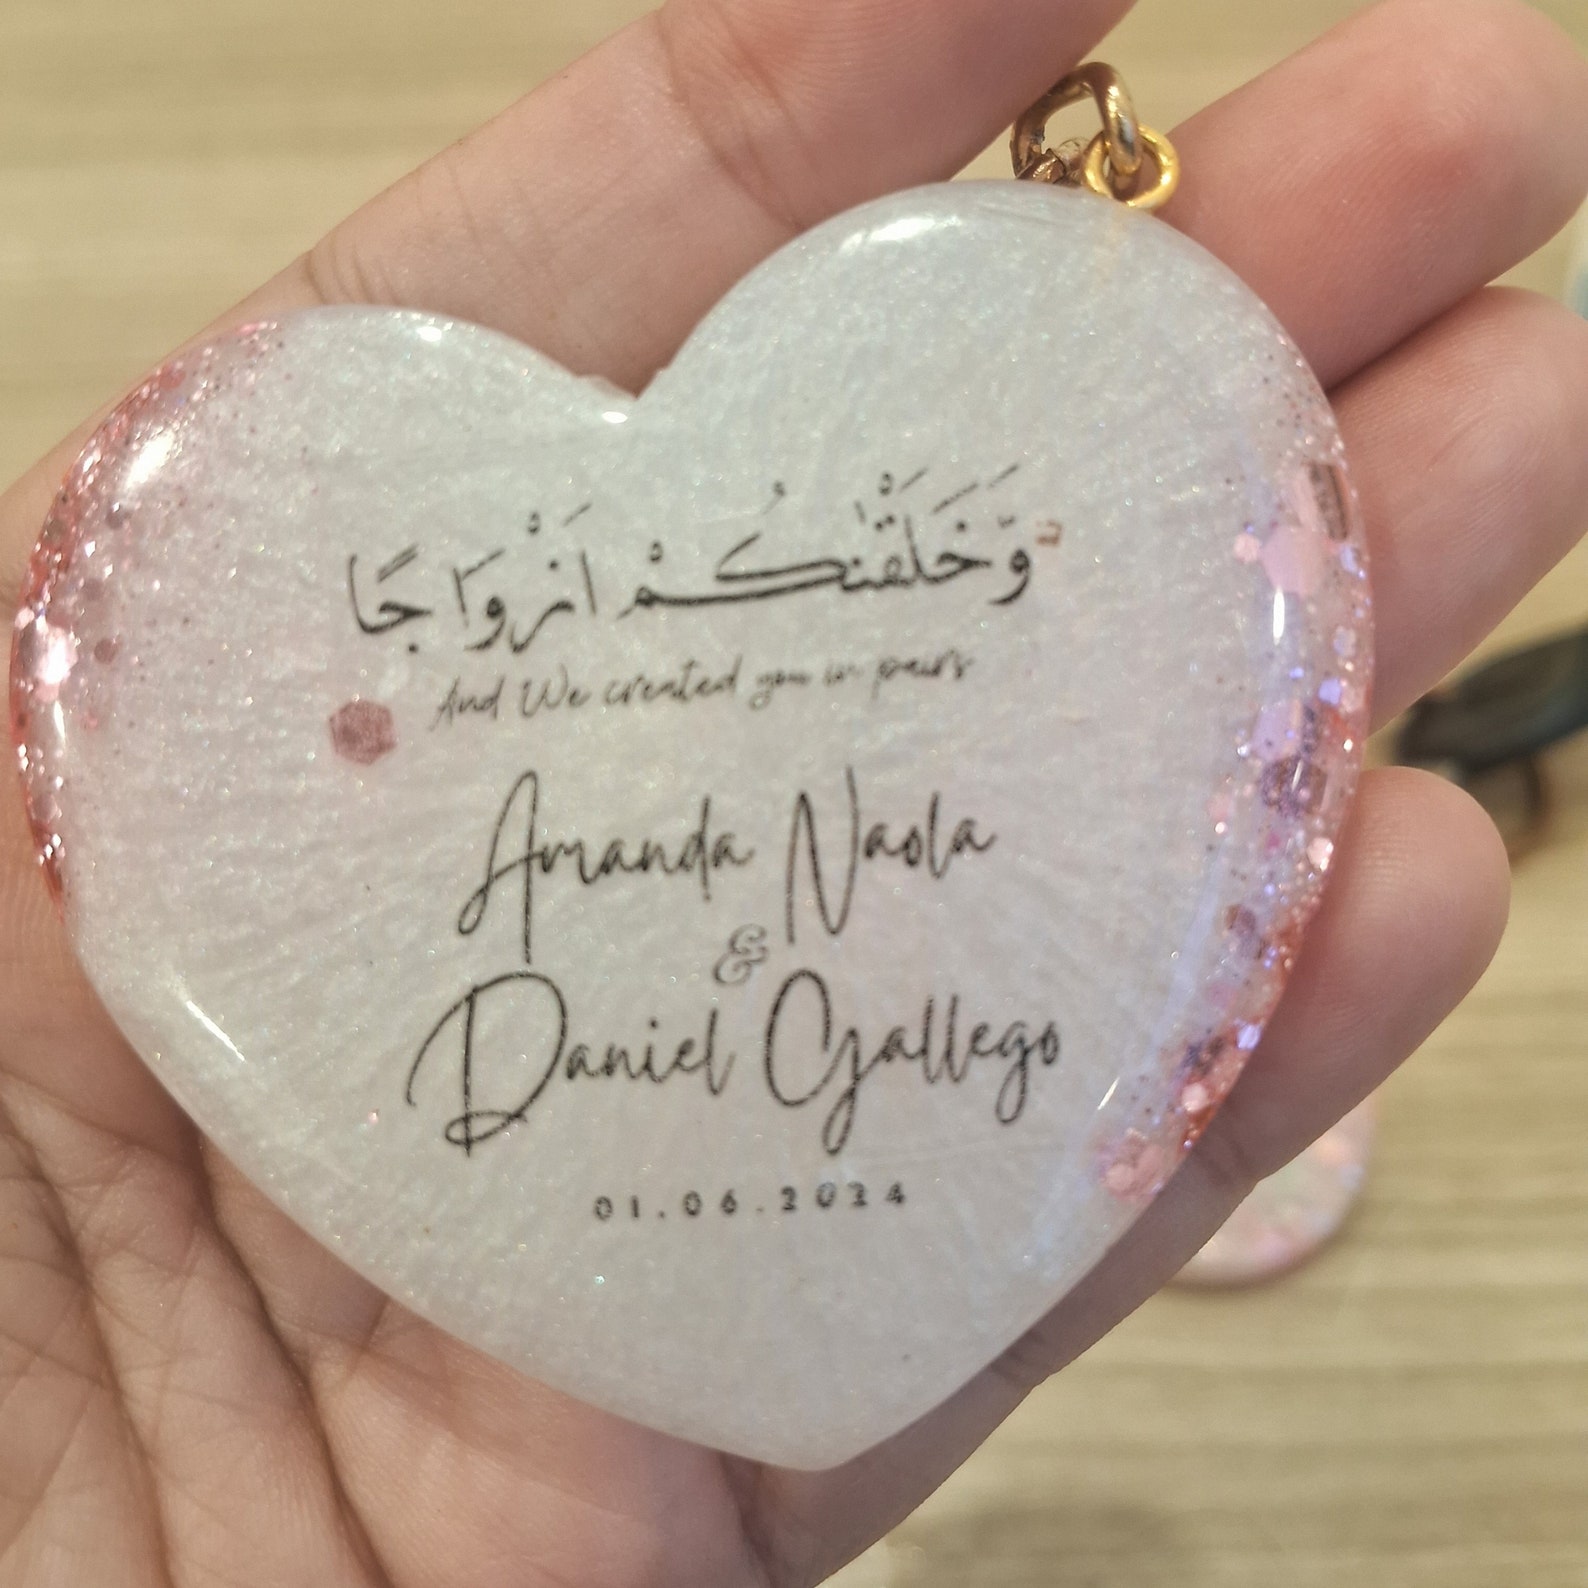 وَّخَلَقْنٰكُمْ اَزْوَاجًا
And We created you in pairs
Amanda Naola
&
Daniel Gallego
01.06.2024